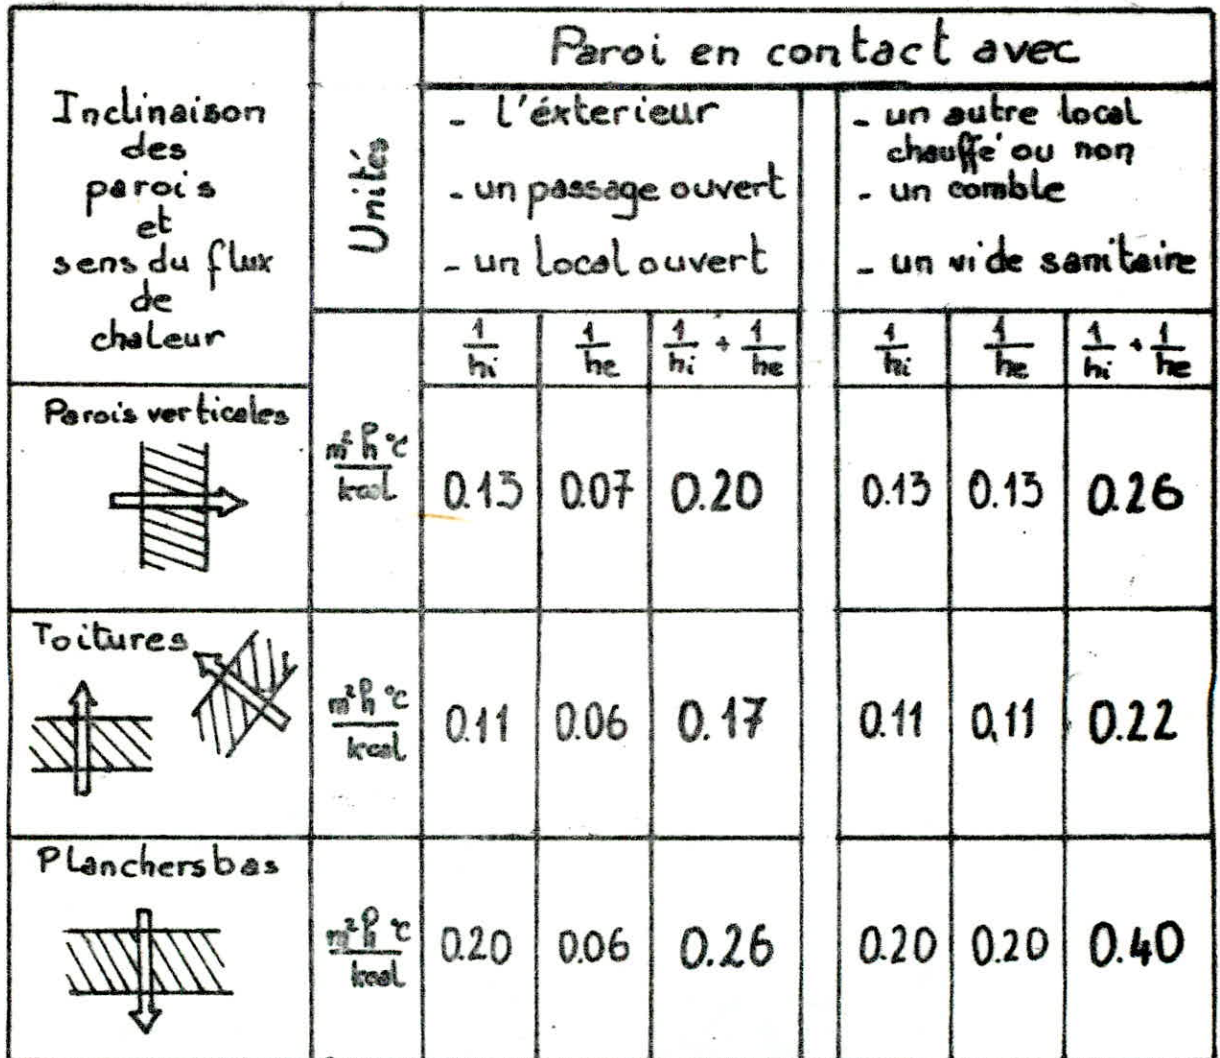 Inclinaison
des
parois
et
sens du flux
de
chaleur
Unités
Paroi en contact avec
- l'éxterieur
- un passage ouvert
- un local ouvert
- un autre local
chauffé ou non
- un comble
- un vide sanitaire
1/hi 1/he 1/hi + 1/he 1/hi 1/he 1/hi + 1/he
Parois verticales
m² h °C / kcal 0.13 0.07 0.20 0.13 0.13 0.26
Toitures
m² h °C / kcal 0.11 0.06 0.17 0.11 0,11 0.22
Planchers bas
m² h °C / kcal 0.20 0.06 0.26 0.20 0.20 0.40